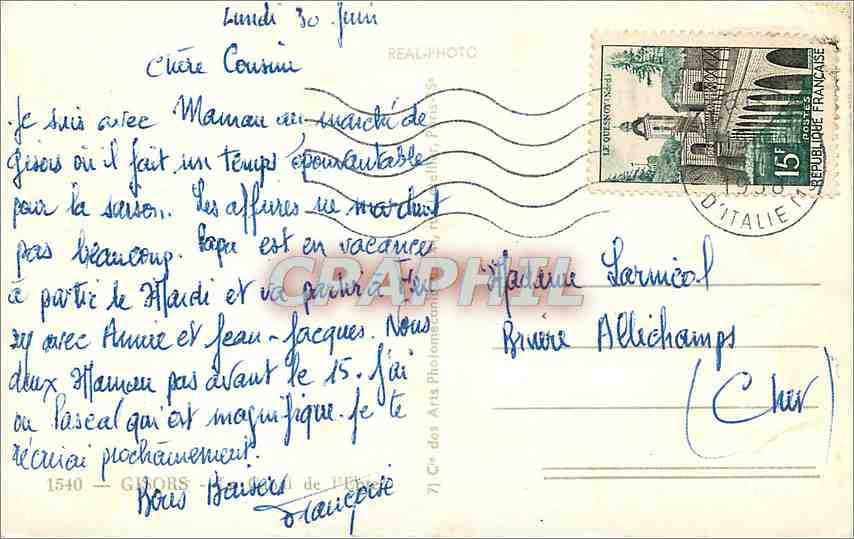 Lundi 30 Juin
REAL-PHOTO
Chère Cousine
Je suis avec Maman au marché de
Gisors où il fait un temps épouvantable
pour la saison. Les affaires ne marchent
pas beaucoup. Papa est en vacances
à partir de Mardi et va partir à
avec Annie et Jean-Jacques. Nous
deux Maman pas avant le 15. J'ai
vu Pascal qui est magnifique. Je te
récrirai prochainement.
Bons Baisers
Françoise
1540 - GISORS - Le Canal de l'Epte
7) Cie des Arts Photomécaniques
LE QUESNOY (Nord)
15F
POSTES
REPUBLIQUE FRANÇAISE
1958
D'ITALIE
Madame Larmical
Bruère Allichamps
(Cher)
CRAPHIL